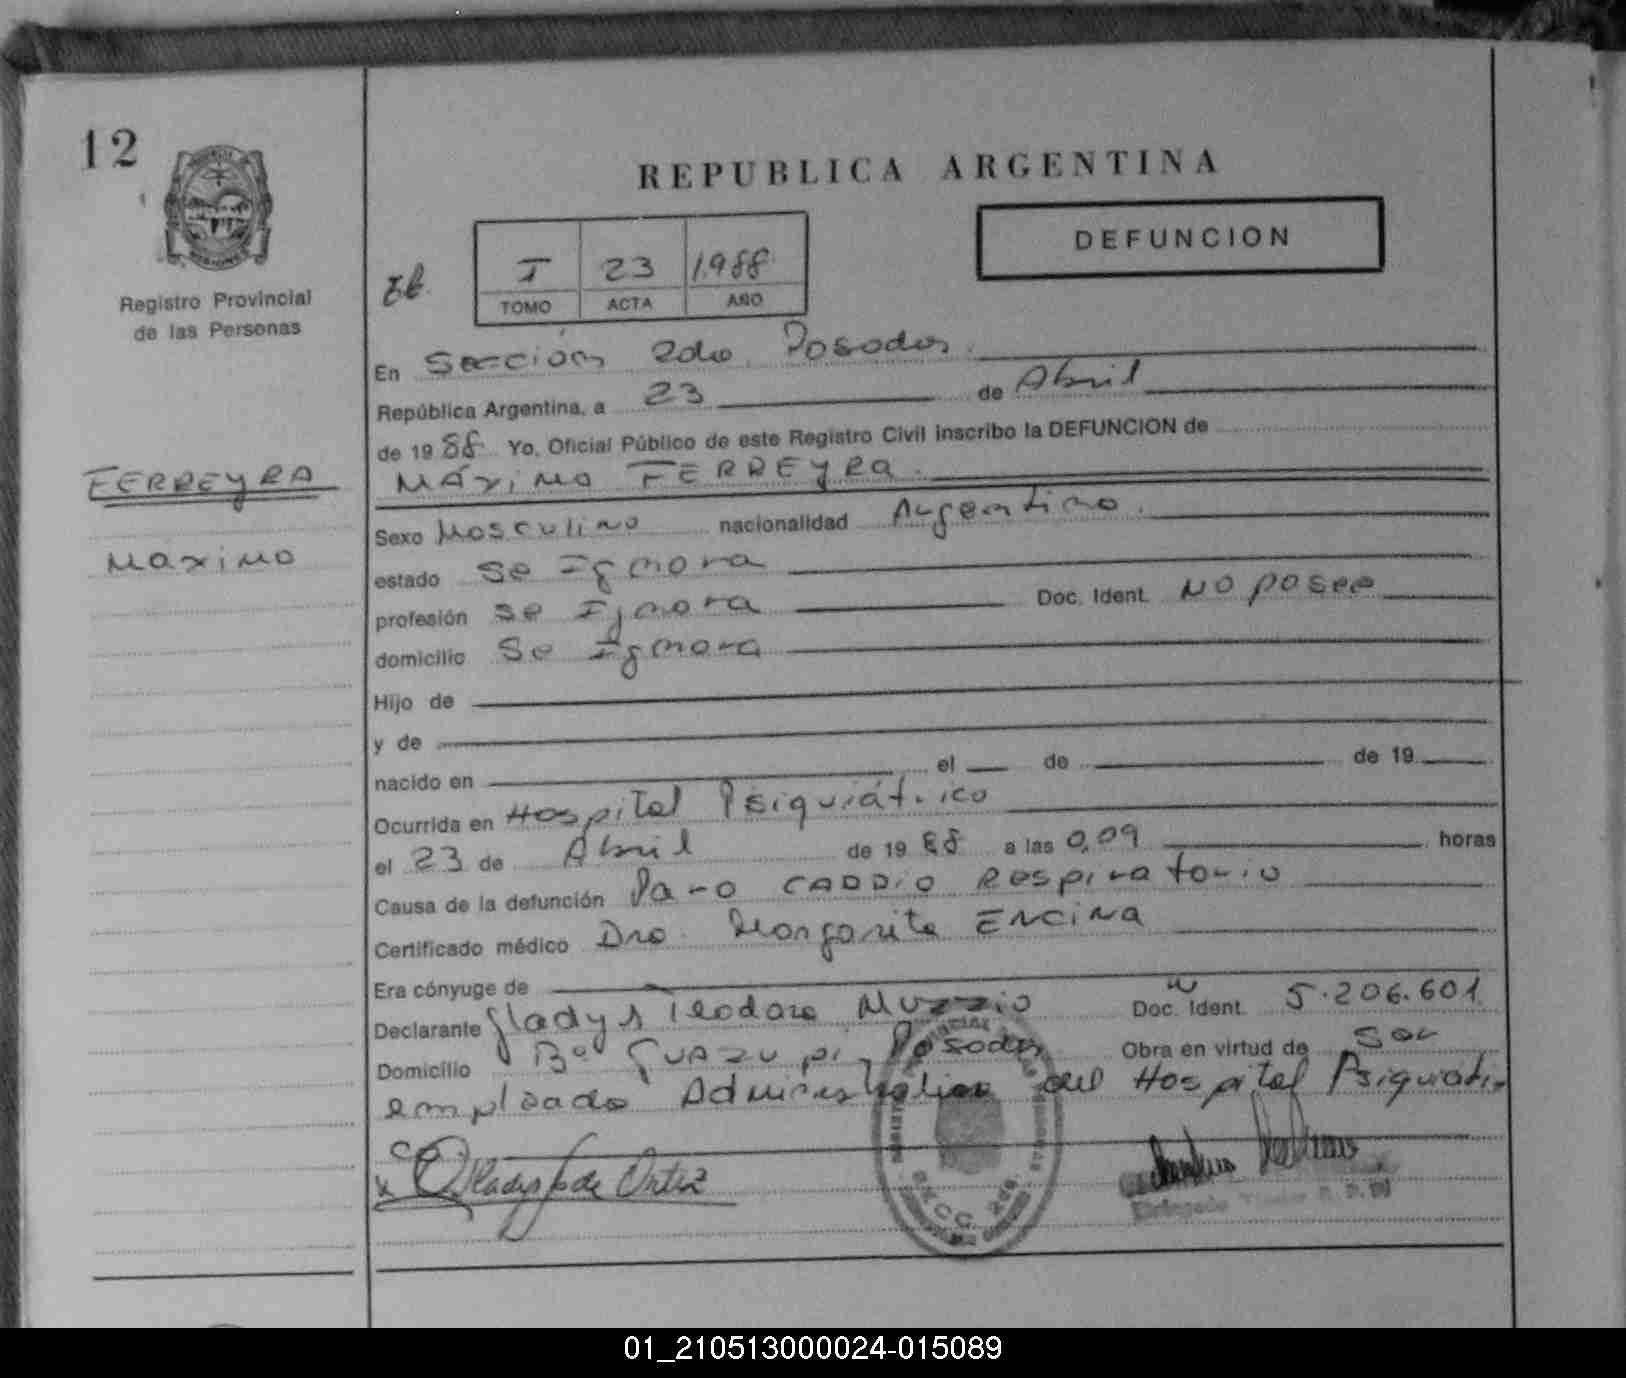 12
REPUBLICA ARGENTINA
DEFUNCION
I 23 1988
TOMO ACTA AÑO
Registro Provincial
de las Personas
En Sección 2da. Posadas.
República Argentina, a 23 de Abril
de 1988 Yo, Oficial Público de este Registro Civil inscribo la DEFUNCION de
FERREYRA
MÁXIMO FERREYRA.
Sexo Masculino nacionalidad Argentino.
Maximo
estado Se Ignora
profesión Se Ignora Doc. Ident. No posee
domicilio Se Ignora
Hijo de
y de
nacido en el de de 19
Ocurrida en Hospital Psiquiátrico
el 23 de Abril de 1988 a las 0,09 horas
Causa de la defunción Paro CARDIO Respiratorio
Certificado médico Dra. Margarita ENCINA
Era cónyuge de
Declarante Gladys Teodora Muzzio Doc. Ident. 5.206.601
Domicilio B° Guazupi, Posadas Obra en virtud de Ser
empleada Administrativa del Hospital Psiquiátri
co
x Gladys de Ortiz
01_210513000024-015089